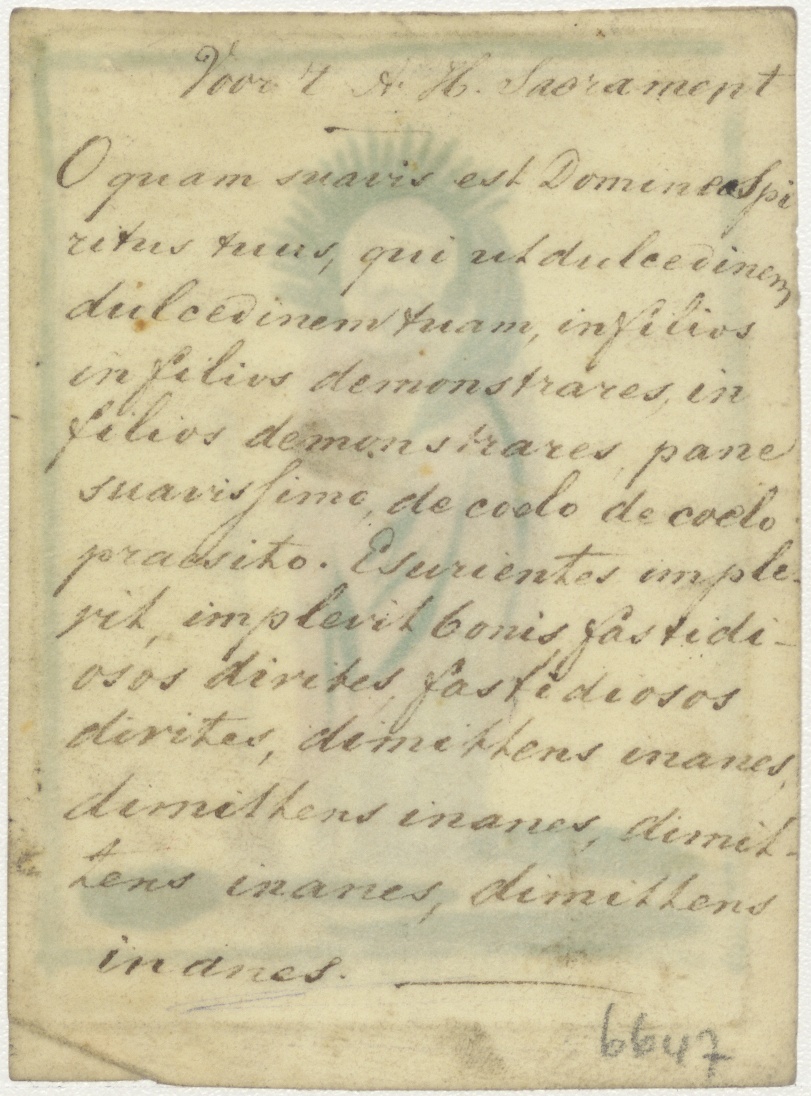 Voor 't A. H. Sacrament
O quam suavis est Domine Spi
ritus tuus, qui ut dulcedinem
dulcedinem tuam, in filios
in filios demonstrares, in
filios demonstrares, pane
suavissimo, de coelo de coelo
praesito. Esurientes imple-
vit, implevit bonis, fastidi-
osos divites, fastidiosos
divites, dimittens inanes,
dimittens inanes, dimit-
tens inanes, dimittens
inanes.
6647